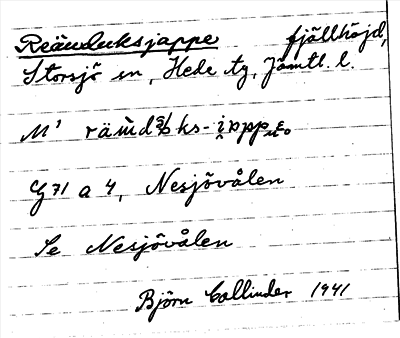 Reänduksjappe fjällhöjd,
Storsjö sn, Hede tg, Jämtl. l.
M¹
G 71 a 4, Nesjövålen
Se Nesjövålen
Björn Collinder 1941